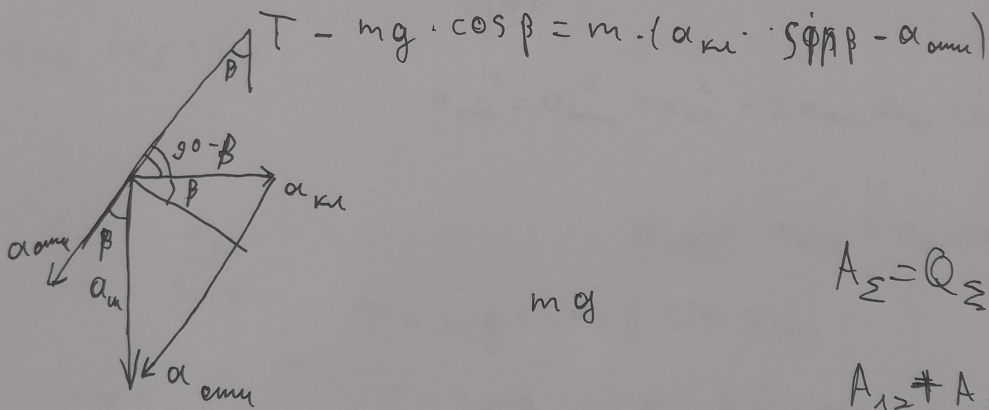 T - mg · cos β = m · (a кл · · sin β - a отн)
β
90-β
β
a кл
a отн
β
a м
a отн
mg
A Σ = Q Σ
A 12 + A